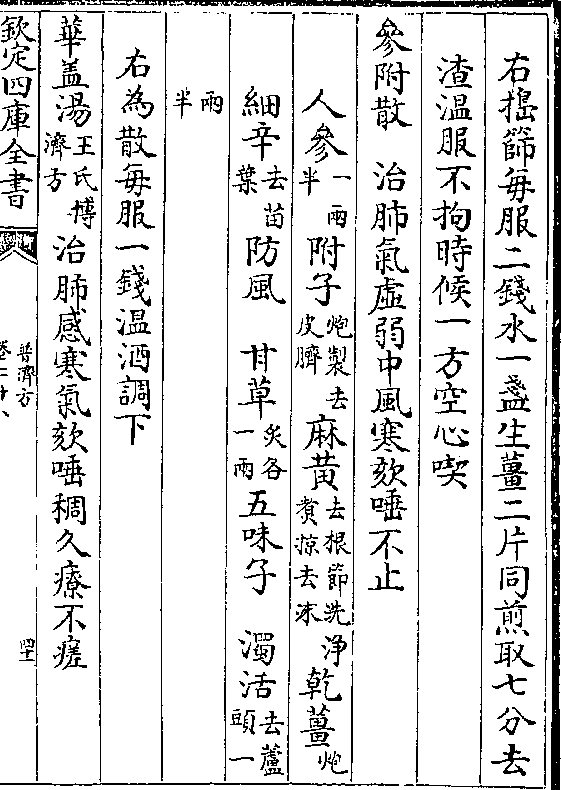 右搗篩每服二錢水一盞生薑二片同煎取七分去
渣温服不拘時候一方空心喫
參附散　治肺氣虛弱中風寒欬唾不止
人參一兩半附子炮製去皮臍麻黄去根節洗煑掠去沫淨乾薑炮
細辛去苗葉防風　甘草炙各一兩五味子　濁活去蘆頭一
兩半
右為散每服一錢温酒調下
華盖湯王氏博濟方治肺感寒氣欬唾稠久療不瘥
欽定四庫全書
普濟方
卷二十八